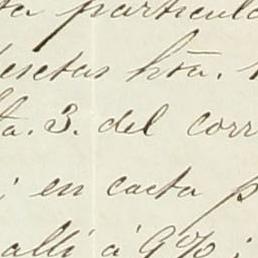 ta particula
esetas hta.
ta. 3. del corr
; en caeta p
alli á 9%;